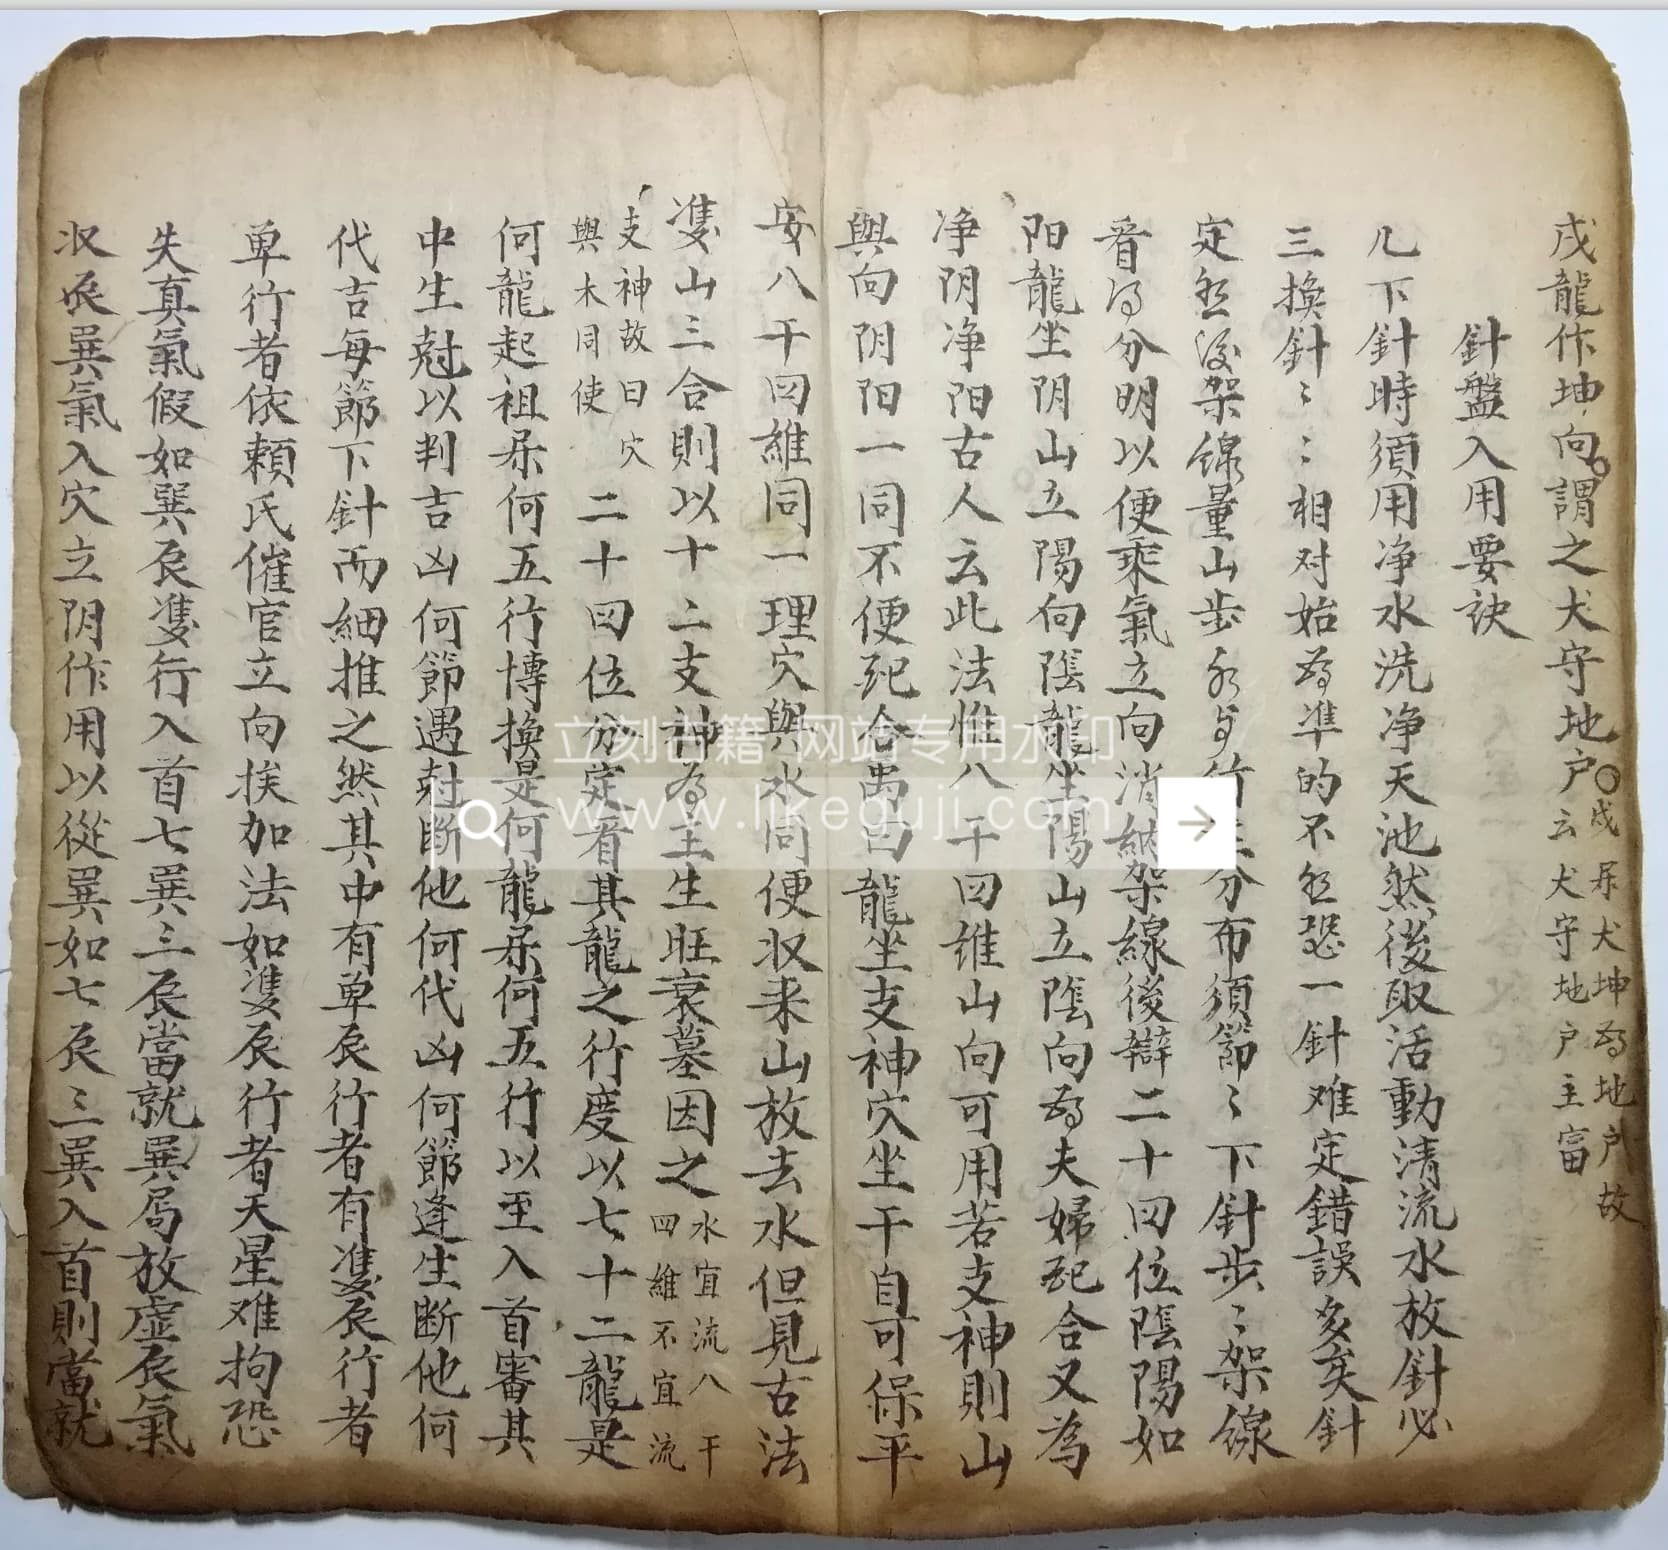 戌龍作坤向謂之犬守地户
戌屎犬坤為地户故
云犬守地户主富
針盤入用要訣
凡下針時須用净水洗净天池然後取活動清流水放針必
三換針〻〻相对始為準的不然恐一針难定錯誤多矣針
定然後架線量山步水与竹 分布須節〻下針步〻架線
看得分明以便乘氣立向消納架線後辯二十四位陰陽如
阳龍坐阴山立陽向陰龍坐陽山立陰向為夫婦配合又為
净阴净阳古人云此法惟八干四維山向可用若支神則山
與向阴阳一同不便配合禹曰龍坐支神穴坐干自可保平
安八干四維同一理穴與水同便収来山放去水但見古法
雙山三合則以十二支神為主生旺衰墓因之
水宜流八干
四維不宜流
支神故曰穴
與木同使
二十四位分定看其龍之行度以七十二龍是
何龍起祖屎何五行博換是何龍屎何五行以至入首審其
中生尅以判吉凶何節遇尅断他何代凶何節逢生断他何
代吉每節下針而細推之然其中有单辰行者有雙辰行者
单行者依賴氏催官立向挨加法如雙辰行者天星难拘恐
失真氣假如巽辰雙行入首七巽三辰當就巽局放虚辰氣
収辰巽氣入穴立阴作用以從巽如七辰三巽入首則當就
立刻古籍-网站专用水印
www.likeguji.com